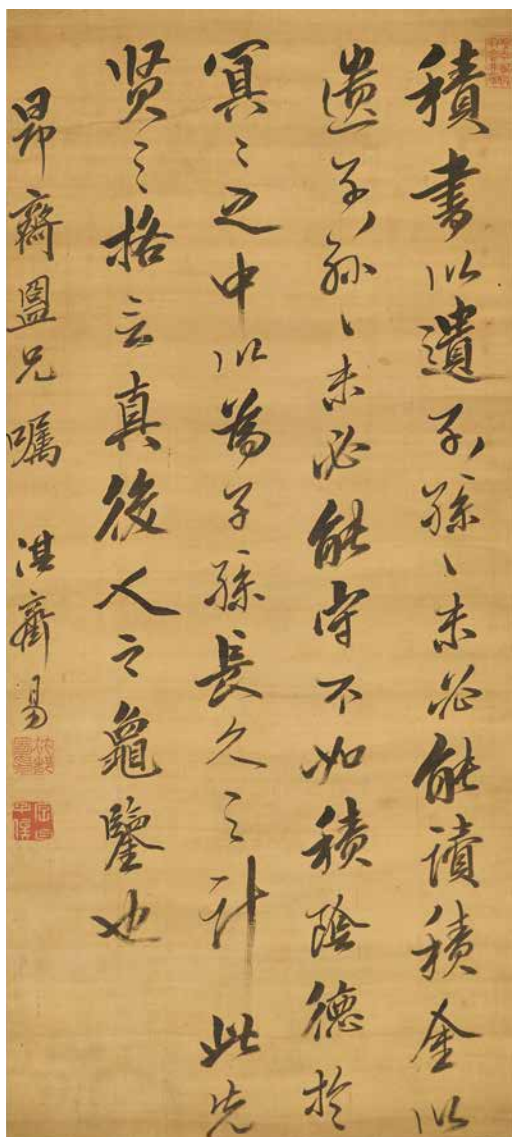 積書以遺子孫〻未必能讀積金以
遺子孫〻未必能守不如積陰德於
冥〻之中以為子孫長久之計 此先
賢之格言真後人之龜鑒也
昂齋盟兄囑 湛齋易